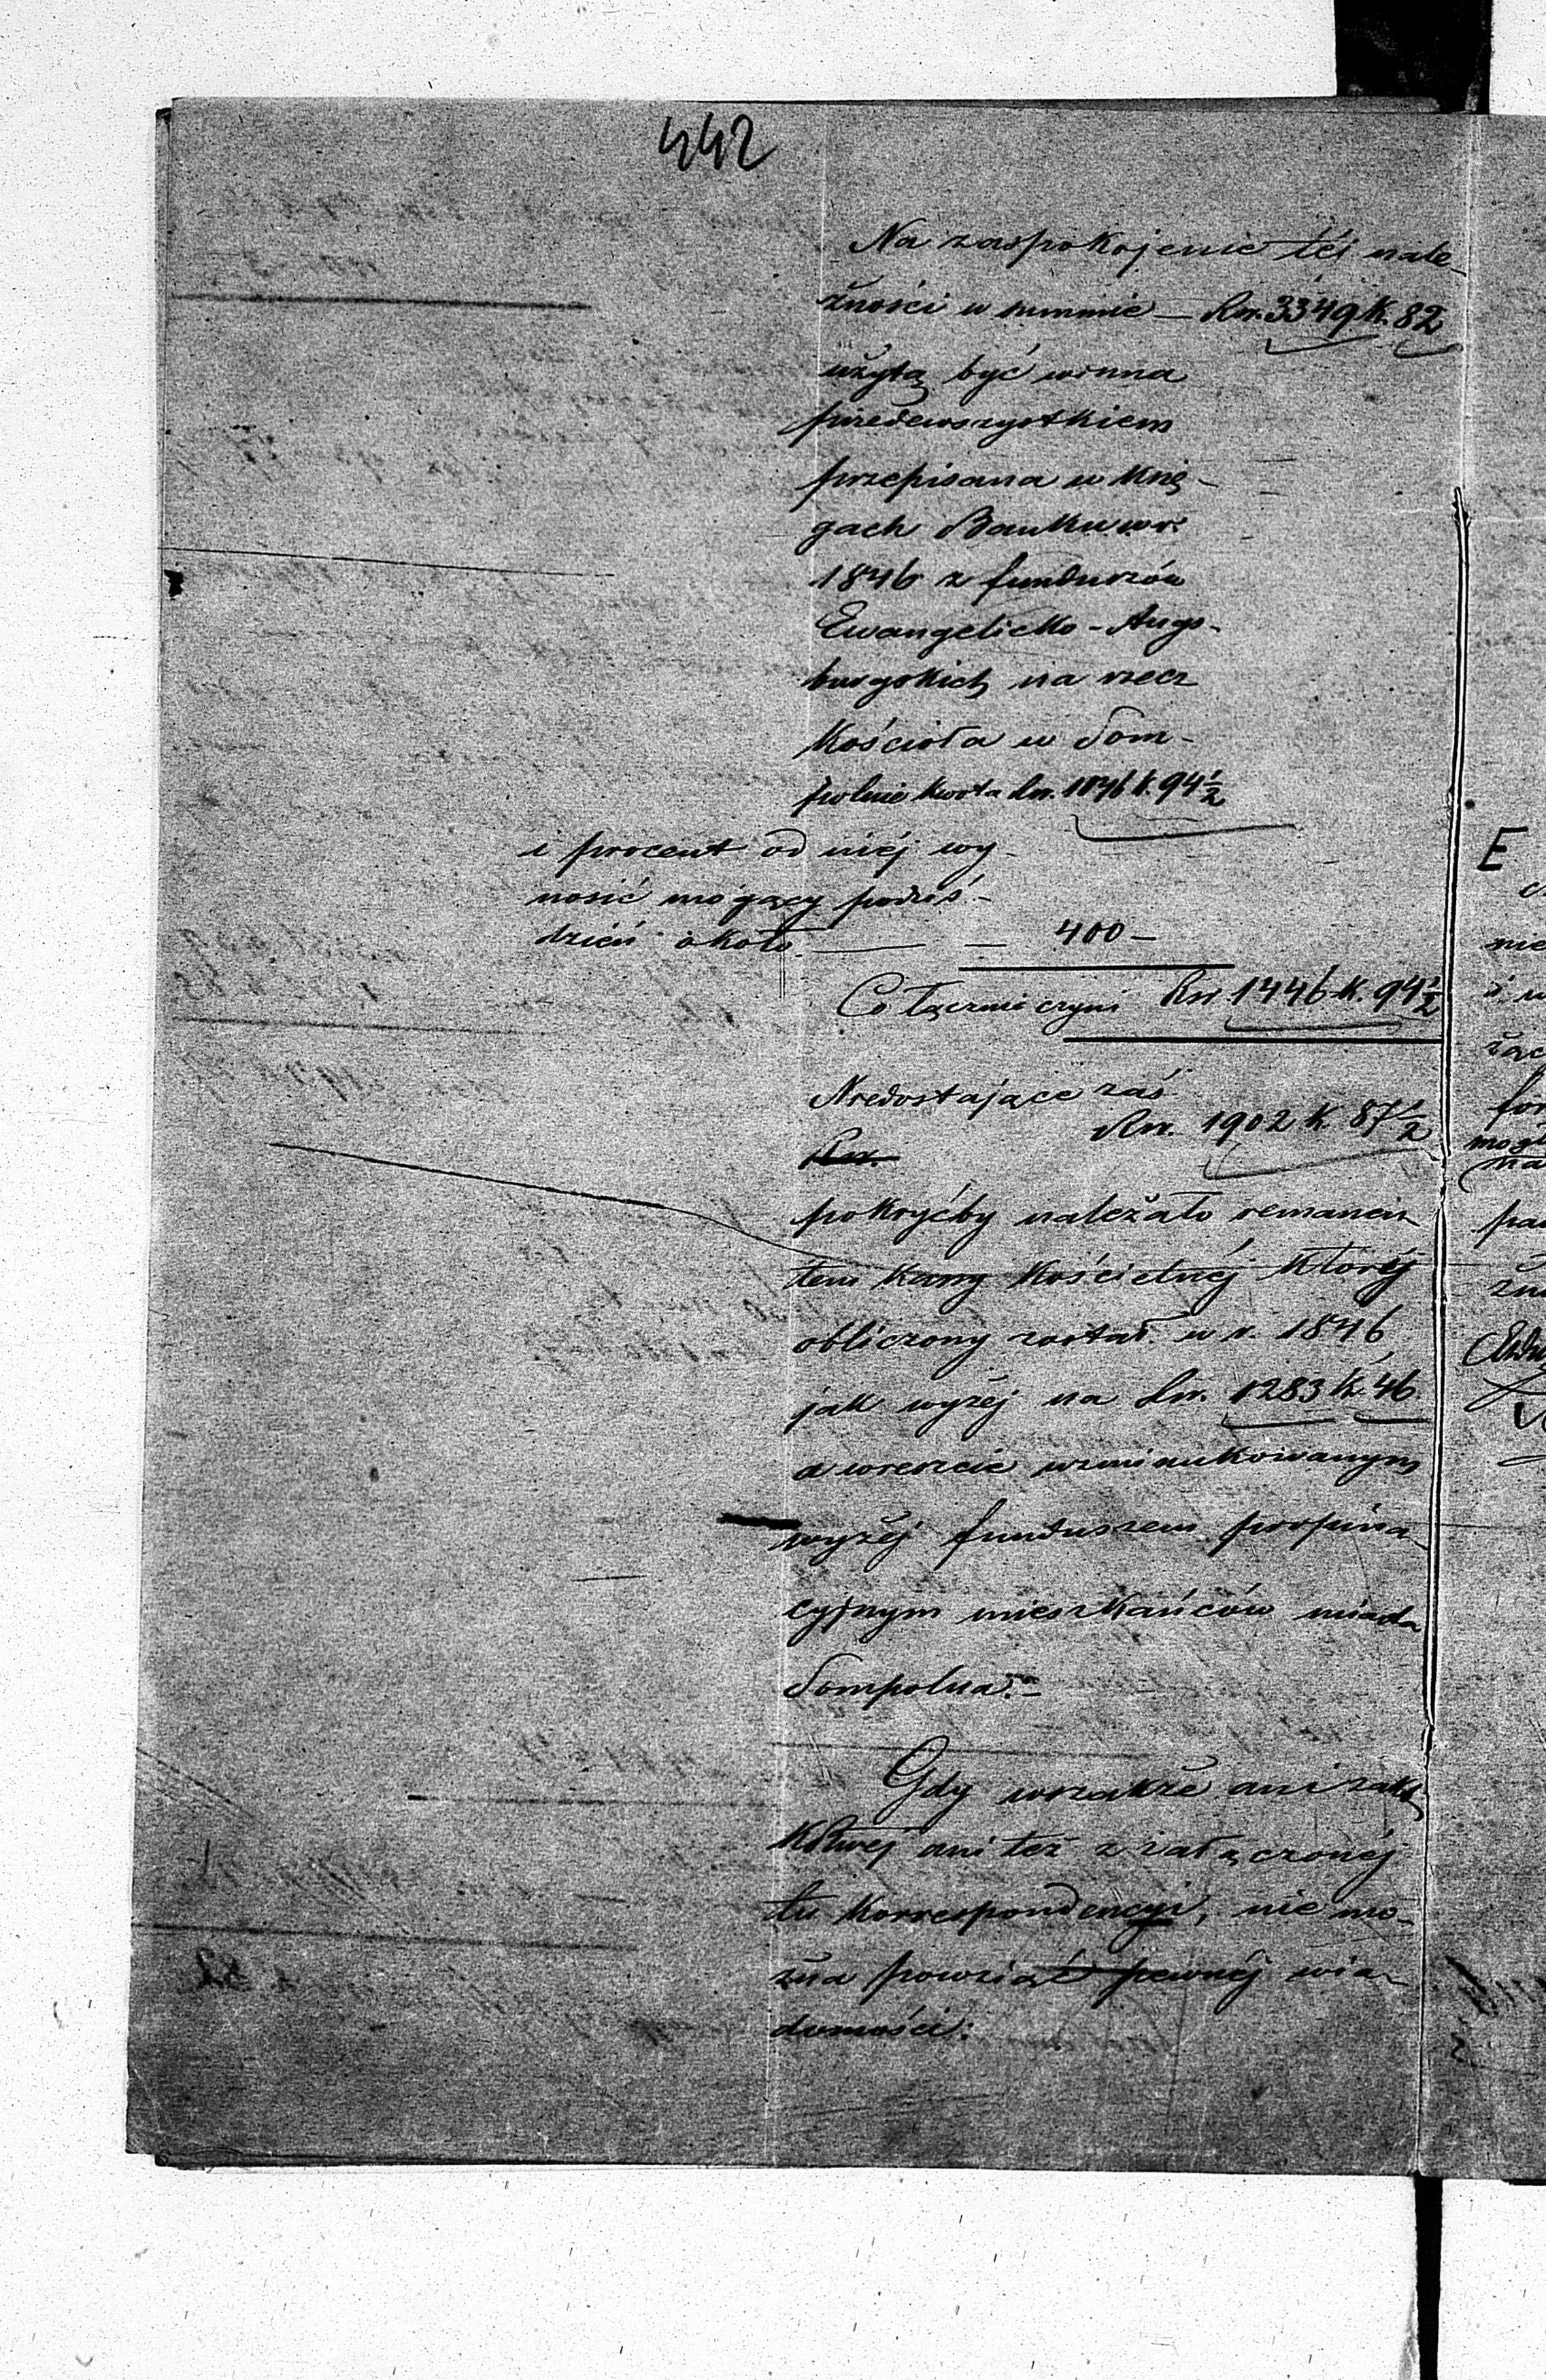 442
Na zaspokojenie téj nale-
żności w summie — Rsr. 3349 K. 82
użytą być winna
przedewszystkiem
przepisana w księ-
gach Banku w r.
1846 z funduszów
Ewangelicko-Augs-
burgskich na rzecz
Kościoła w Som-
polnie kwota Rsr. 1046 k. 94½
i procent od niéj wy-
nosić mogący podziś-
dzień około — — 400 —
Co łącznie czyni Rsr. 1446 K. 94½
Niedostające zaś
Rsr. 1902 K. 87½
Rsr.
pokryćby należało remanen-
tem kassy kościelnéj któréj
obliczony został w r. 1846
jak wyżéj na Rsr. 1283 K. 46
a wreszcie wzmiankowanym
wyżéj funduszem propina-
cyjnym mieszkańców miasta
Sompolna. —
Gdy wszakże ani z akt
ani też z załączonéj
tu korrespondencyi, nie mo-
żna powziąść pewnéj wia-
domości: